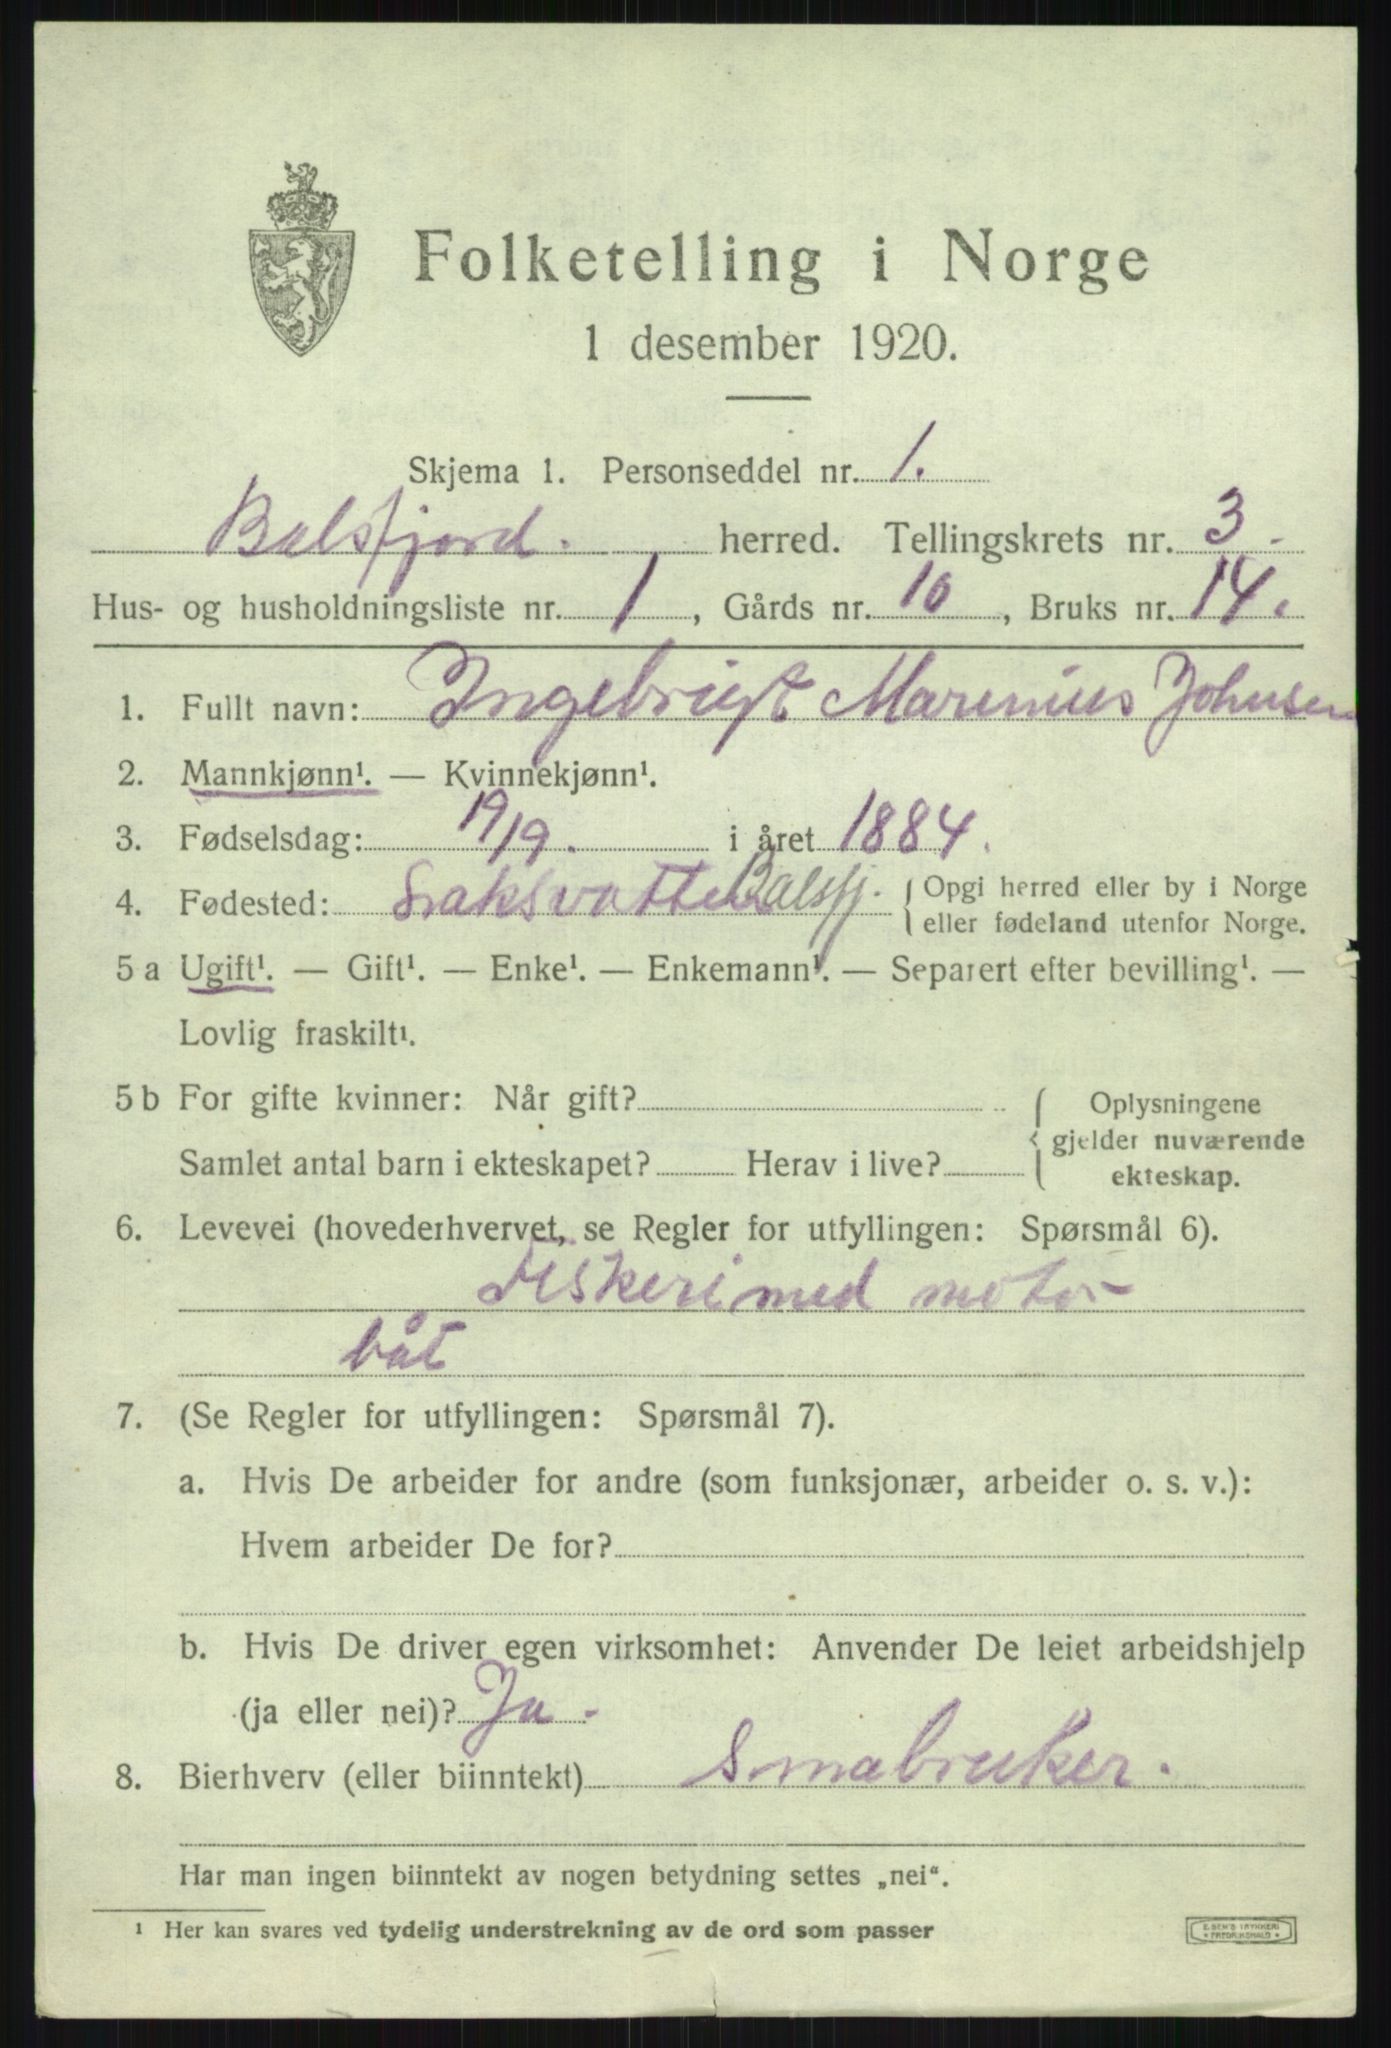 Folketelling i Norge
1 desember 1920.
Skjema 1. Personseddel nr. 1.
Balsfjord. herred. Tellingskrets nr. 3.
Hus- og husholdningsliste nr. 1, Gårds nr. 10, Bruks nr. 14.
1. Fullt navn: Ingebrigt Marenius Johnsen
2. Mannkjønn¹. — Kvinnekjønn¹.
3. Fødselsdag: 19/9. i året 1884.
4. Fødested: Laksvatten Balsfj. Opgi herred eller by i Norge
eller fødeland utenfor Norge.
5 a Ugift¹. — Gift¹. — Enke¹. — Enkemann¹. — Separert efter bevilling¹. —
Lovlig fraskilt¹.
5 b For gifte kvinner: Når gift? Oplysningene
gjelder nuværende
Samlet antal barn i ekteskapet? Herav i live? ekteskap.
6. Levevei (hovederhvervet, se Regler for utfyllingen: Spørsmål 6).
Fiskeri med motor
båt
7. (Se Regler for utfyllingen: Spørsmål 7).
a. Hvis De arbeider for andre (som funksjonær, arbeider o. s. v.):
Hvem arbeider De for?
b. Hvis De driver egen virksomhet: Anvender De leiet arbeidshjelp
(ja eller nei)? Ja.
8. Bierhverv (eller biinntekt) Smabruker.
Har man ingen biinntekt av nogen betydning settes „nei“.
¹ Her kan svares ved tydelig understrekning av de ord som passer